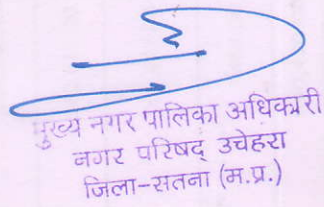 मुख्य नगर पालिका अधिकारी
नगर परिषद् उचेहरा
जिला-सतना (म.प्र.)